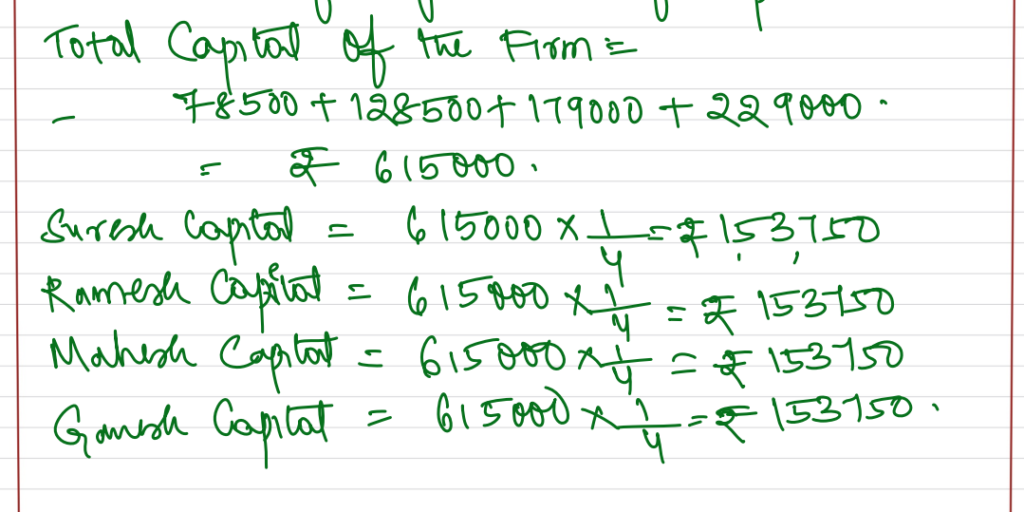 Total Capital of the Firm =
- 78500 + 128500 + 179000 + 229000.
= ₹ 615000.
Suresh Capital = 615000 × 1/4 = ₹ 1,53,750
Ramesh Capital = 615000 × 1/4 = ₹ 153750
Mahesh Capital = 615000 × 1/4 = ₹ 153750
Ganesh Capital = 615000 × 1/4 = ₹ 153750.